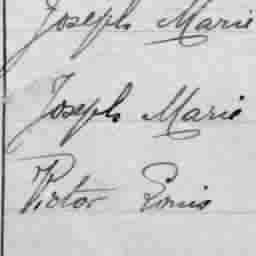 Joseph Marie
Joseph Marie
Victor Louis